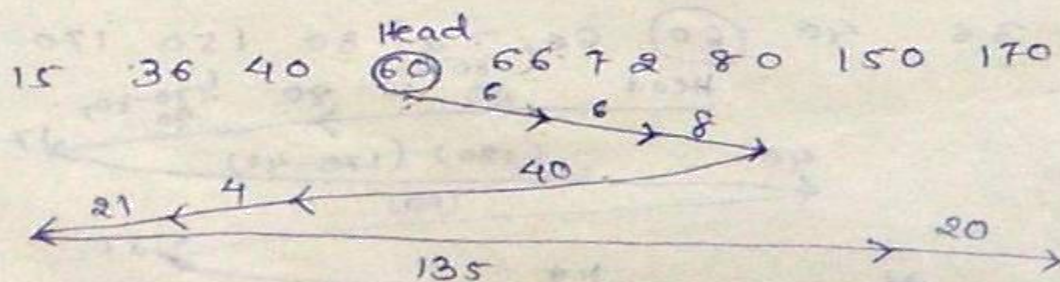 Head
15 36 40 60 66 72 80 150 170
6 6 8
40
4
21
20
135